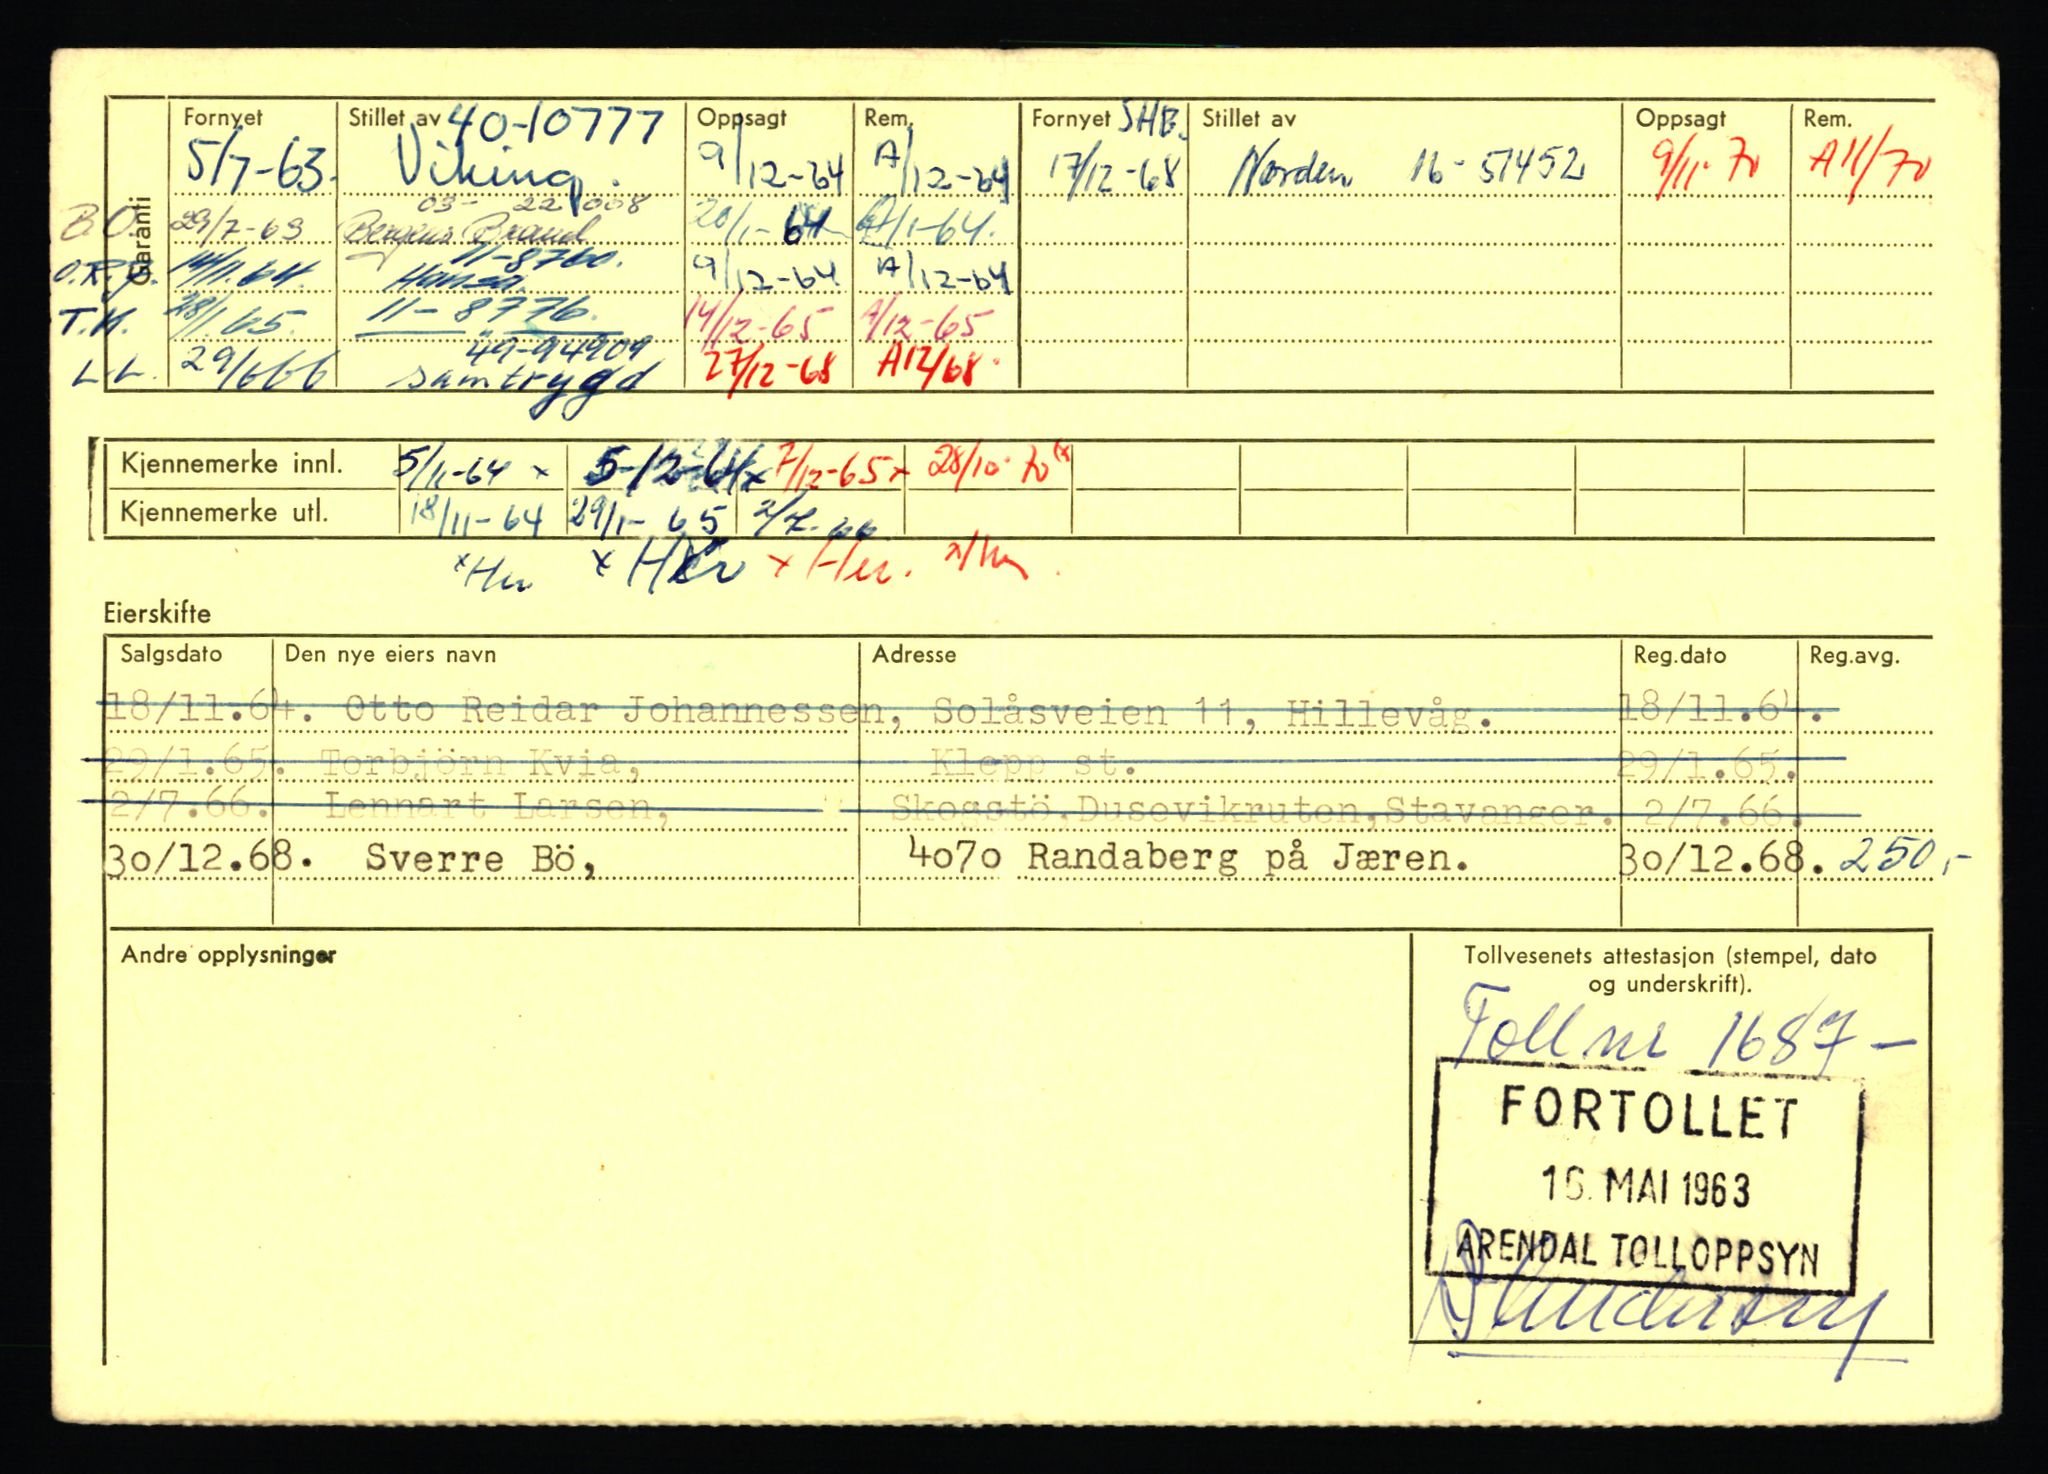 Fornyet Stillet av 40-10777 Oppsagt Rem. Fornyet SHB. Stillet av Oppsagt Rem.
5/7-63. Viking. 9/12-64 A/12-64 17/12-68 Norden 16-51452 9/11-70 A11/70
Garanti
03- 221008
B.O. 29/7-63 Bergens Brand 20/1-64 A/1-64.
11-8760.
O.R.J. 14/11.64. Hansa. 9/12-64 A/12-64
T.K. 28/1.65. 11-8776. 14/12-65 A/12-65
49-94909
L.L. 29/6 66 samtrygd 27/12-68 A12/68.
Kjennemerke innl. 5/11-64 x 5-12-64x 7/12-65x 28/10-70 (x
Kjennemerke utl. 18/11-64 29/1-65 2/7-66
Eierskifte
Salgsdato Den nye eiers navn Adresse Reg.dato Reg.avg.
18/11.64. Otto Reidar Johannessen, Solåsveien 11, Hillevåg. 18/11.64.
29/1.65. Torbjörn Kvia, Klepp st. 29/1.65.
2/7.66. Lennart Larsen, Skogstö,Dusevikruten,Stavanger. 2/7.66.
30/12.68. Sverre Bö, 4070 Randaberg på Jæren. 30/12.68. 250,-
Andre opplysninger
Tollvesenets attestasjon (stempel, dato
og underskrift).
Toll nr 1687-
FORTOLLET
16. MAI 1963
ARENDAL TOLLOPPSYN